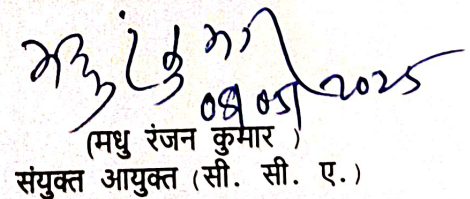 08/05/2025
(मधु रंजन कुमार )
संयुक्त आयुक्त (सी. सी. ए.)